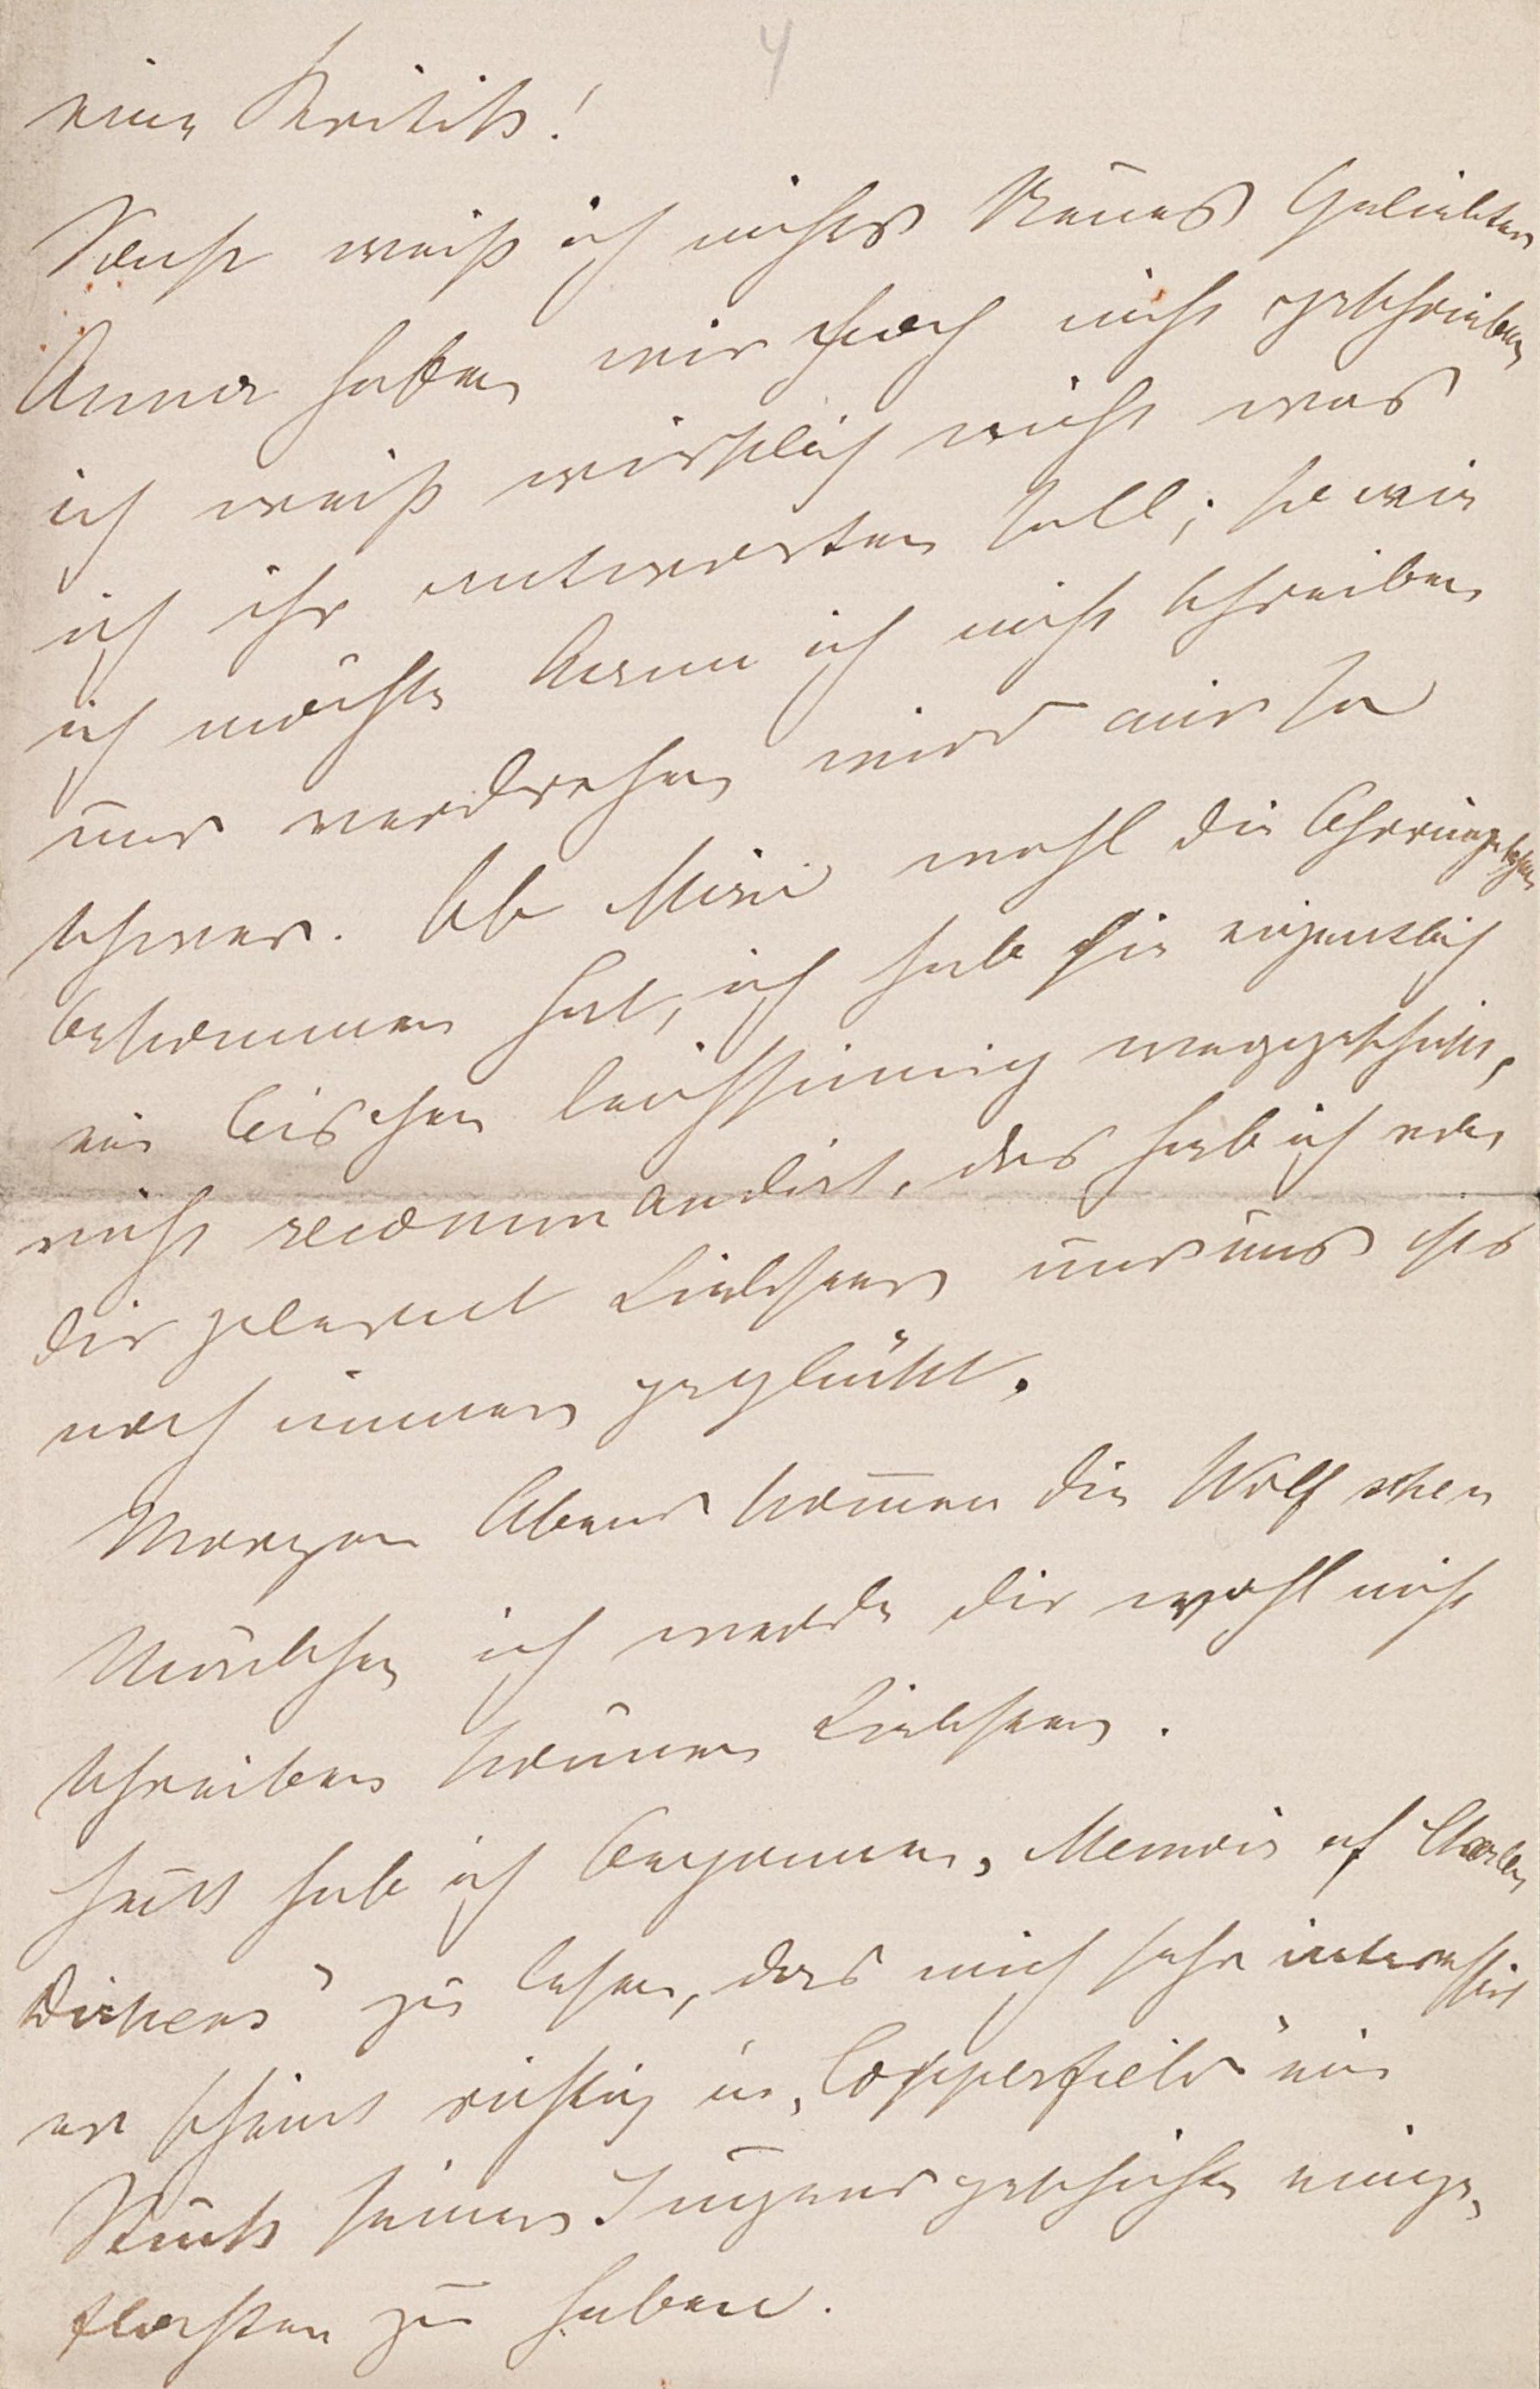 4
eine Kritik!
Sonst weiß ich nichts Neues Geliebter
Anna haben wir noch nicht geschrieben
ich weiß wirklich nicht was
ich ihr antworten soll; so wie
ich möchte kann ich nicht schreiben
und verdrehen wird mir so
schwer. Ob Mini wohl die Ohrringelchen
bekommen hat, ich hab sie eigentlich
ein bischen leichtsinnig weggeschickt,
nicht recommandirt, das hab ich von
dir gelernt Liebster und uns ists
noch immer geglückt.
Morgen Abend kom̄en die Wolfschen
Mädchen ich werde dir wohl nicht
schreiben können Liebster.
Heut hab ich begonnen, Memoir of Charles
Dickens" zu lesen, das mich sehr interessirt
er scheint richtig in, Copperfield" ein
Stück seiner Jugendgeschichte einge,
flochten zu haben.